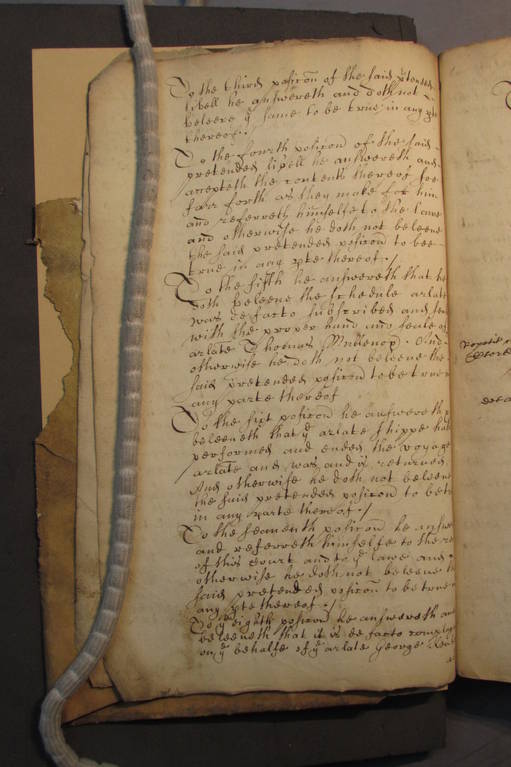 To the third posicon of the said p̱tended
libell he answereth and doth not
beleeve yͤ same to be true in any p̱te
thereof./
To the fourth posicon of the said
pretended libell he answereth and
accepteth the contents thereof soe
farr forth as they make for him
and referreth himselfe to the lawe
and otherwise he doth not beleeve
the said pretended posicon to bee
true in any p̱te thereof./
To the fifth he answereth that he
doth beleeve the schedule arlate
was de facto subscribed and sea
with the proper hand and seale of
arlate Thomas And
otherwise he doth not beleeve the
said pretended posicon to be true
any parte thereof
To the sixt posicon he answereth
beleeveth that yͤ arlate shippe hath
performed and ended the voyage
arlate and was and is returned
And otherwise he doth not beleeve
the said pretended posicon to be
in any parte thereof./
To the seaventh posicon he answe
and referreth himselfe to the re
of this Court and to yͤ lawe and
otherwise he doth not beleeve the
said pretended posicon to be true
any p̱te thereof./
To yͤ eighth posicon he answereth and
beleeveth that it is de facto
on yͤ behalfe of yͤ arlate George